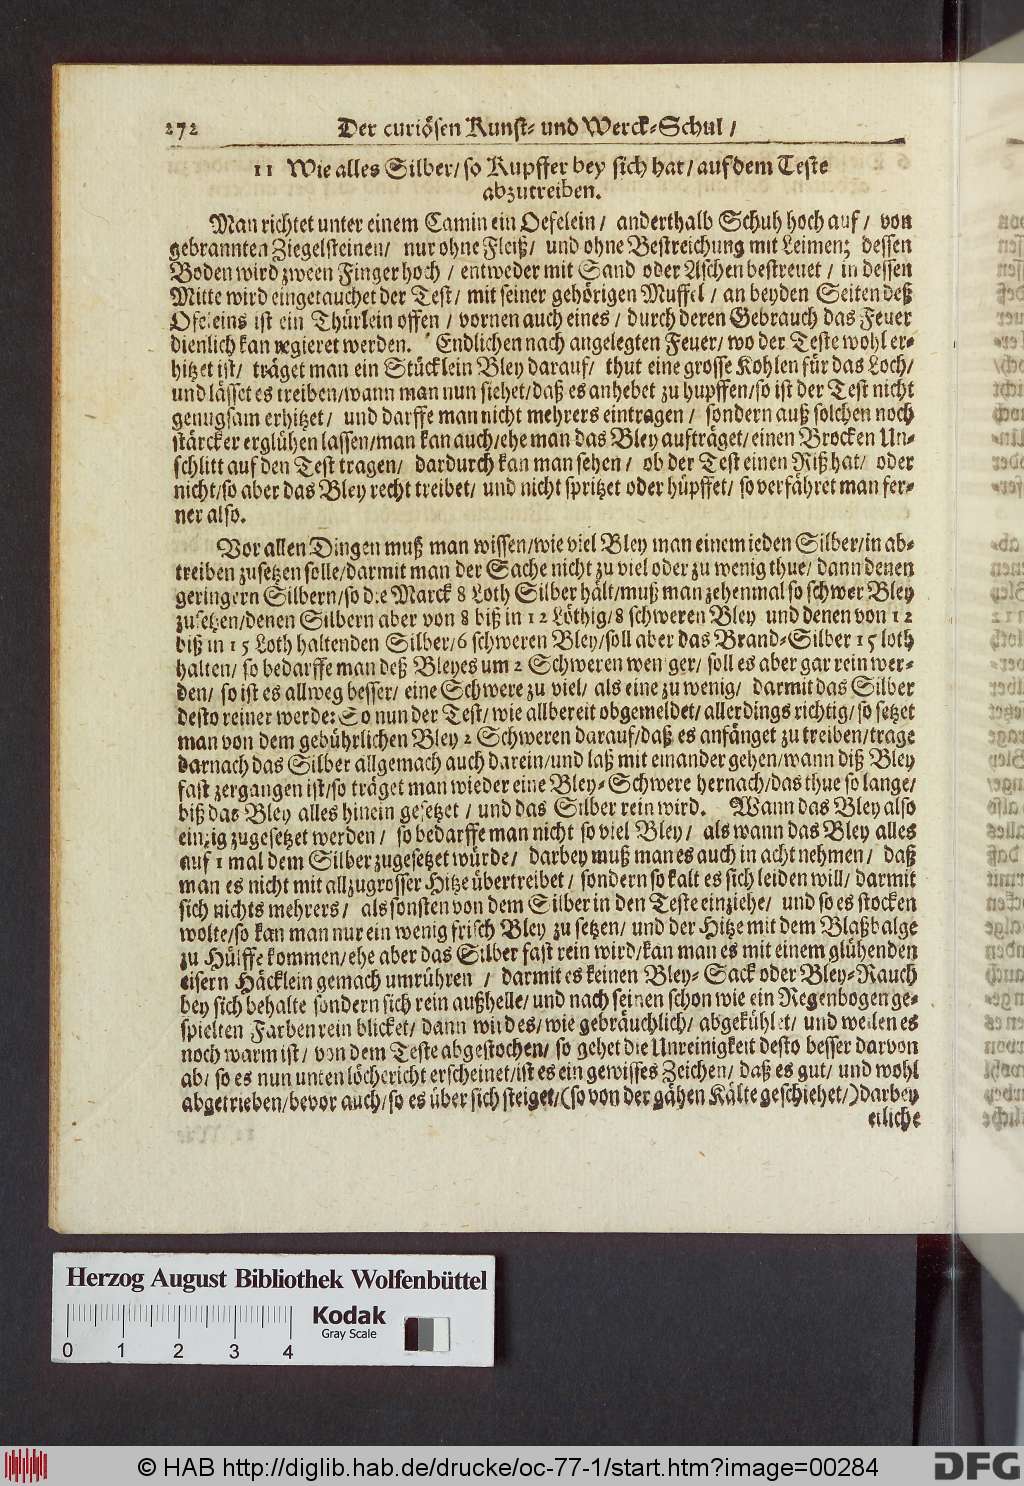 272 Der curiösen Kunst- und Werck-Schul /
11 Wie alles Silber / so Kupffer bey sich hat / auf dem Teste
abzutreiben.
Man richtet unter einem Camin ein Oefelein / anderthalb Schuh hoch auf / von
gebrannten Ziegelsteinen / nur ohne Fleiß / und ohne Bestreichung mit Leimen; dessen
Boden wird zween Finger hoch / entweder mit Sand oder Aschen bestreuet / in dessen
Mitte wird eingetauchet der Test / mit seiner gehörigen Muffel / an beyden Seiten deß
Ofeleins ist ein Thürlein offen / vornen auch eines / durch deren Gebrauch das Feuer
dienlich kan regieret werden. Endlichen nach angelegten Feuer / wo der Teste wohl er-
hitzet ist / träget man ein Stücklein Bley darauf / thut eine grosse Kohlen für das Loch /
und lässet es treiben / wann man nun siehet / daß es anhebet zu hupffen / so ist der Test nicht
genugsam erhitzet / und darffe man nicht mehrers eintragen / sondern auß solchen noch
stärcker erglühen lassen / man kan auch / ehe man das Bley aufträget / einen Brocken Un-
schlitt auf den Test tragen / dardurch kan man sehen / ob der Test einen Riß hat / oder
nicht / so aber das Bley recht treibet / und nicht spritzet oder hüpffet / so verfähret man fer-
ner also.
Vor allen Dingen muß man wissen / wie viel Bley man einem ieden Silber / in ab-
treiben zusetzen solle / darmit man der Sache nicht zu viel oder zu wenig thue / dann denen
geringern Silbern / so die Marck 8 Loth Silber hält / muß man zehenmal so schwer Bley
zusetzen / denen Silbern aber von 8 biß in 12 Löthig / 8 schweren Bley und denen von 12
biß in 15 Loth haltenden Silber / 6 schweren Bley / soll aber das Brand-Silber 15 loth
halten / so bedarffe man deß Bleyes um 2 Schweren weniger / soll es aber gar rein wer-
den / so ist es allweg besser / eine Schwere zu viel / als eine zu wenig / darmit das Silber
desto reiner werde: So nun der Test / wie allbereit obgemeldet / allerdings richtig / so setzet
man von dem gebührlichen Bley 2 Schweren darauf / daß es anfänget zu treiben / trage
darnach das Silber allgemach auch darein / und laß mit einander gehen / wann diß Bley
fast zergangen ist / so träget man wieder eine Bley-Schwere hernach / das thue so lange /
biß das Bley alles hinein gesetzet / und das Silber rein wird. Wann das Bley also
einzig zugesetzet werden / so bedarffe man nicht so viel Bley / als wann das Bley alles
auf 1 mal dem Silber zugesetzet würde / darbey muß man es auch in acht nehmen / daß
man es nicht mit allzugrosser Hitze übertreibet / sondern so kalt es sich leiden will / darmit
sich nichts mehrers / als sonsten von dem Silber in den Teste einziehe / und so es stocken
wolte / so kan man nur ein wenig frisch Bley zu setzen / und der Hitze mit dem Blaßbalge
zu Hülffe kommen / ehe aber das Silber fast rein wird / kan man es mit einem glühenden
eisern Häcklein gemach umrühren / darmit es keinen Bley-Sack oder Bley-Rauch
bey sich behalte sondern sich rein außhelle / und nach seinen schon wie ein Regenbogen ge-
spielten Farben rein blicket / dann wird es / wie gebräuchlich / abgekühlet / und weilen es
noch warm ist / von dem Teste abgestochen / so gehet die Unreinigkeit desto besser darvon
ab / so es nun unten löchericht erscheinet / ist es ein gewisses Zeichen / daß es gut / und wohl
abgetrieben / bevor auch / so es über sich steiget / (so von der gähen Kälte geschiehet /) darbey
etliche
Herzog August Bibliothek Wolfenbüttel
Kodak
Gray Scale
0 1 2 3 4
© HAB http://diglib.hab.de/drucke/oc-77-1/start.htm?image=00284 DFG